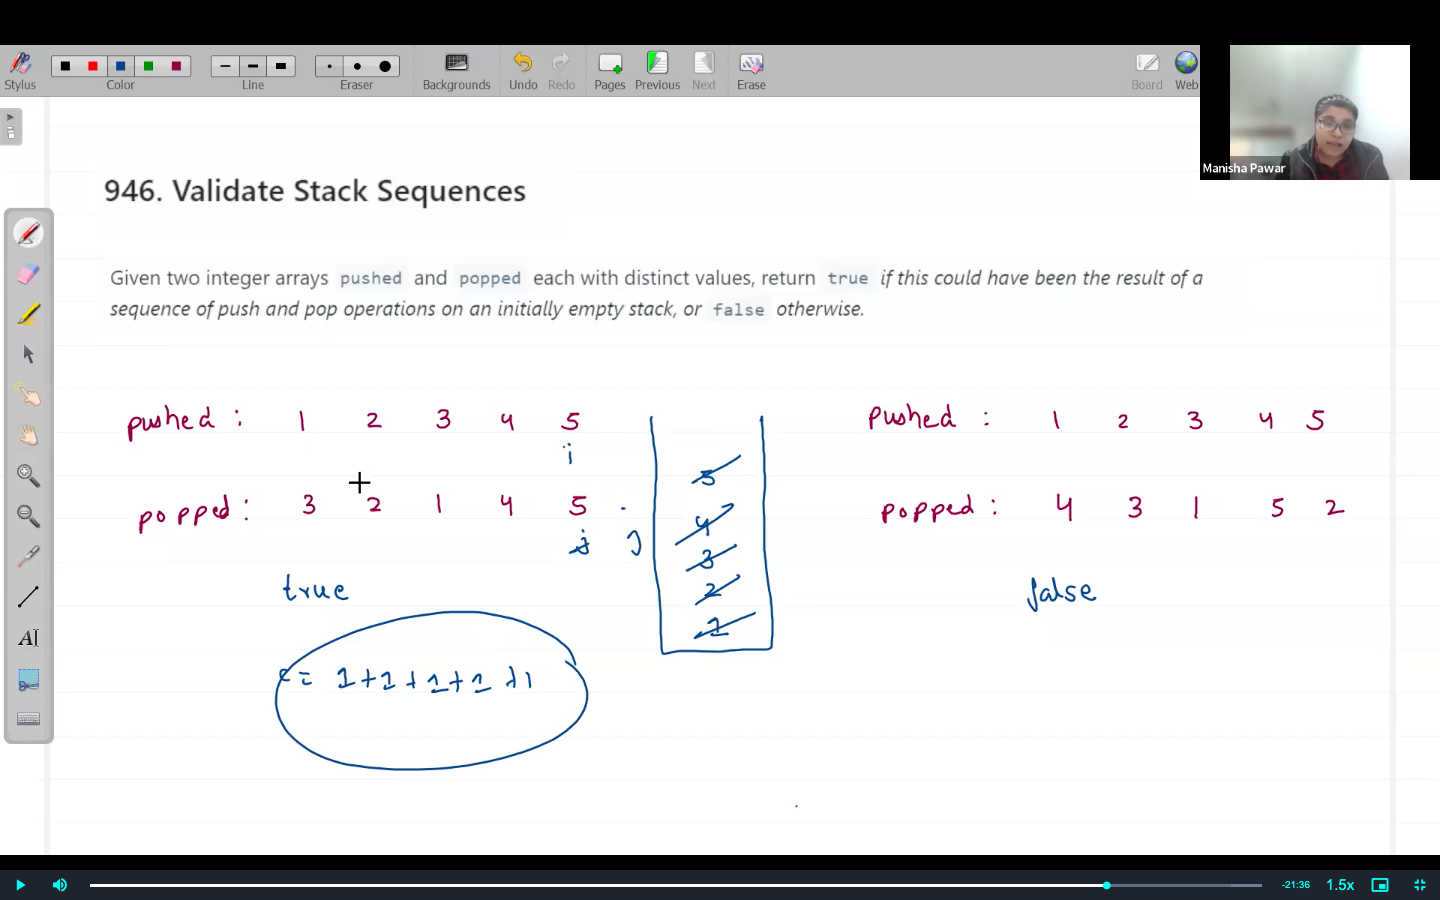 Stylus
Color
Line
Eraser
Backgrounds
Undo
Redo
Pages
Previous
Next
Erase
Board
Web
Manisha Pawar
946. Validate Stack Sequences
Given two integer arrays pushed and popped each with distinct values, return true if this could have been the result of a
sequence of push and pop operations on an initially empty stack, or false otherwise.
pushed : 1 2 3 4 5
i
popped : 3 2 1 4 5
j j
true
c = 1+1+1+1+1
5
4
3
2
1
pushed : 1 2 3 4 5
popped : 4 3 1 5 2
false
AI
-21:36
1.5x